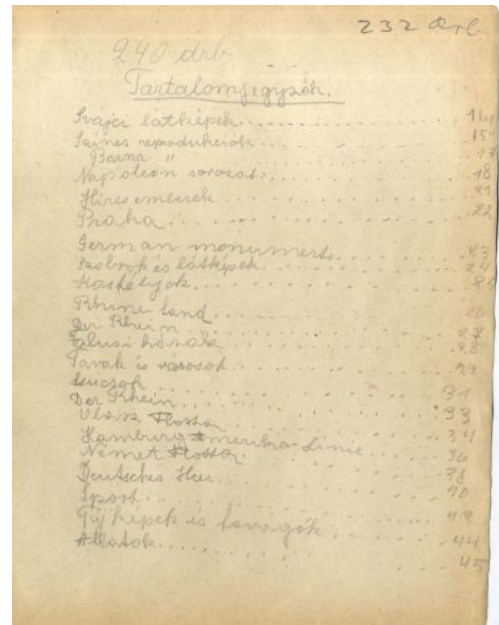 232 drb
240 drb
Tartalomjegyzék.
Svajci látképek 1
Szines reprodukciók 15
Barna " 17
Napoleon sorozat 18
Híres emberek 21
Praha 22
German monuments 23
Szobrok és látképek 24
Kastélyok
Rhine land 26
Der Rhein 27
Falusi házak 28
Tavak és városok 29
Der Rhein 31
Flotta 33
Hamburg Amerika Linie 34
Német Flotta 36
Deutsches Heer 38
Sport 40
Tájképek és lovagók 42
Állatok 44
45